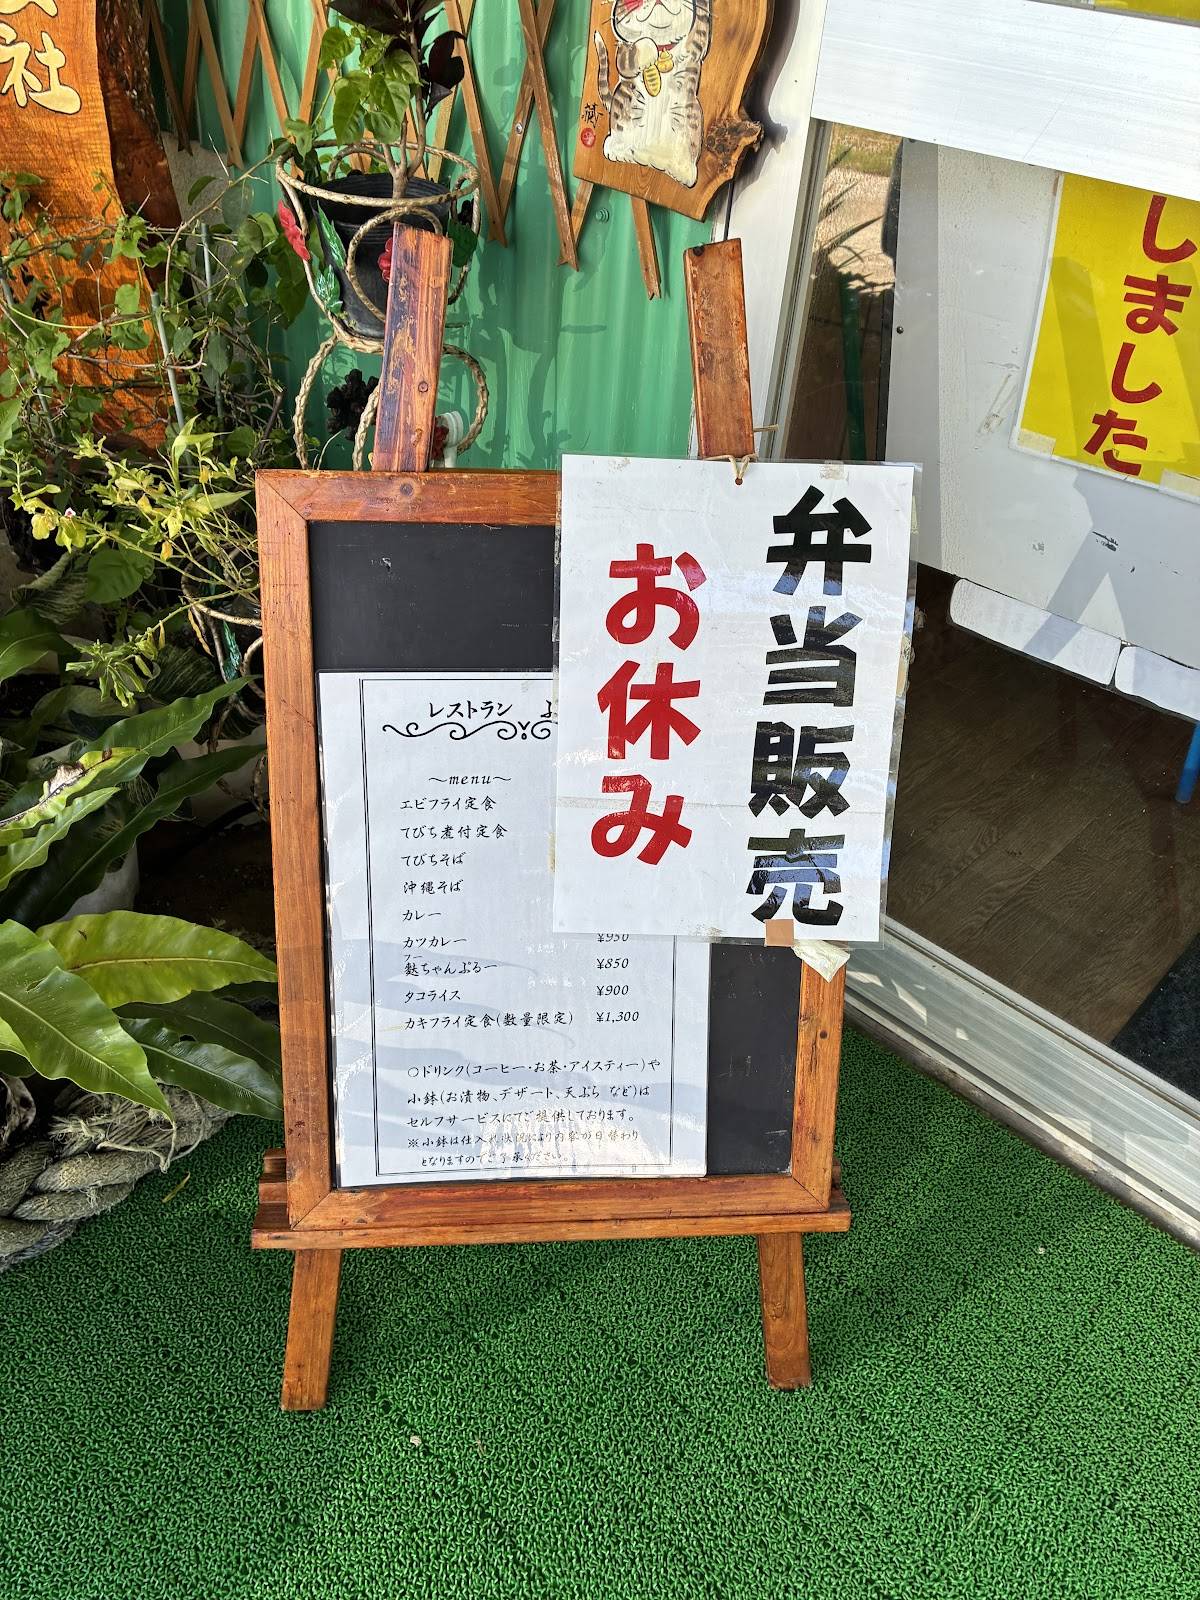 社
しました
弁当販売
お休み
レストラン よ
～menu～
エビフライ定食
てびち煮付定食
てびちそば
沖縄そば
カレー
カツカレー ¥950
フー
麩ちゃんぷるー ¥850
タコライス ¥900
カキフライ定食(数量限定) ¥1,300
○ドリンク(コーヒー・お茶・アイスティー)や
小鉢(お漬物、デザート、天ぷら など)は
セルフサービスにてご提供しております。
※小鉢は仕入れ状況により内容が日替わり
となりますのでご了承ください。